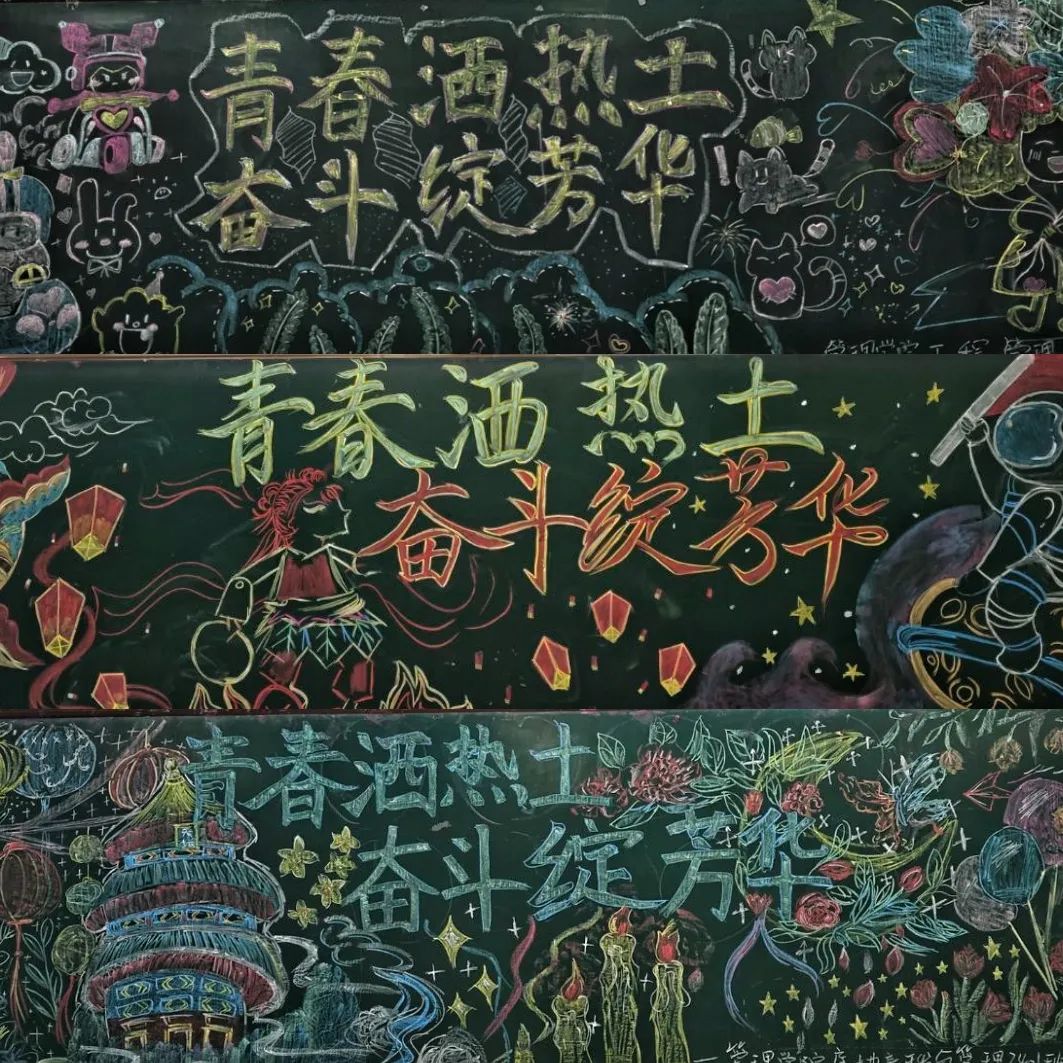 青春洒热土
奋斗绽芳华
青春洒热土
奋斗绽芳华
青春洒热土
奋斗绽芳华